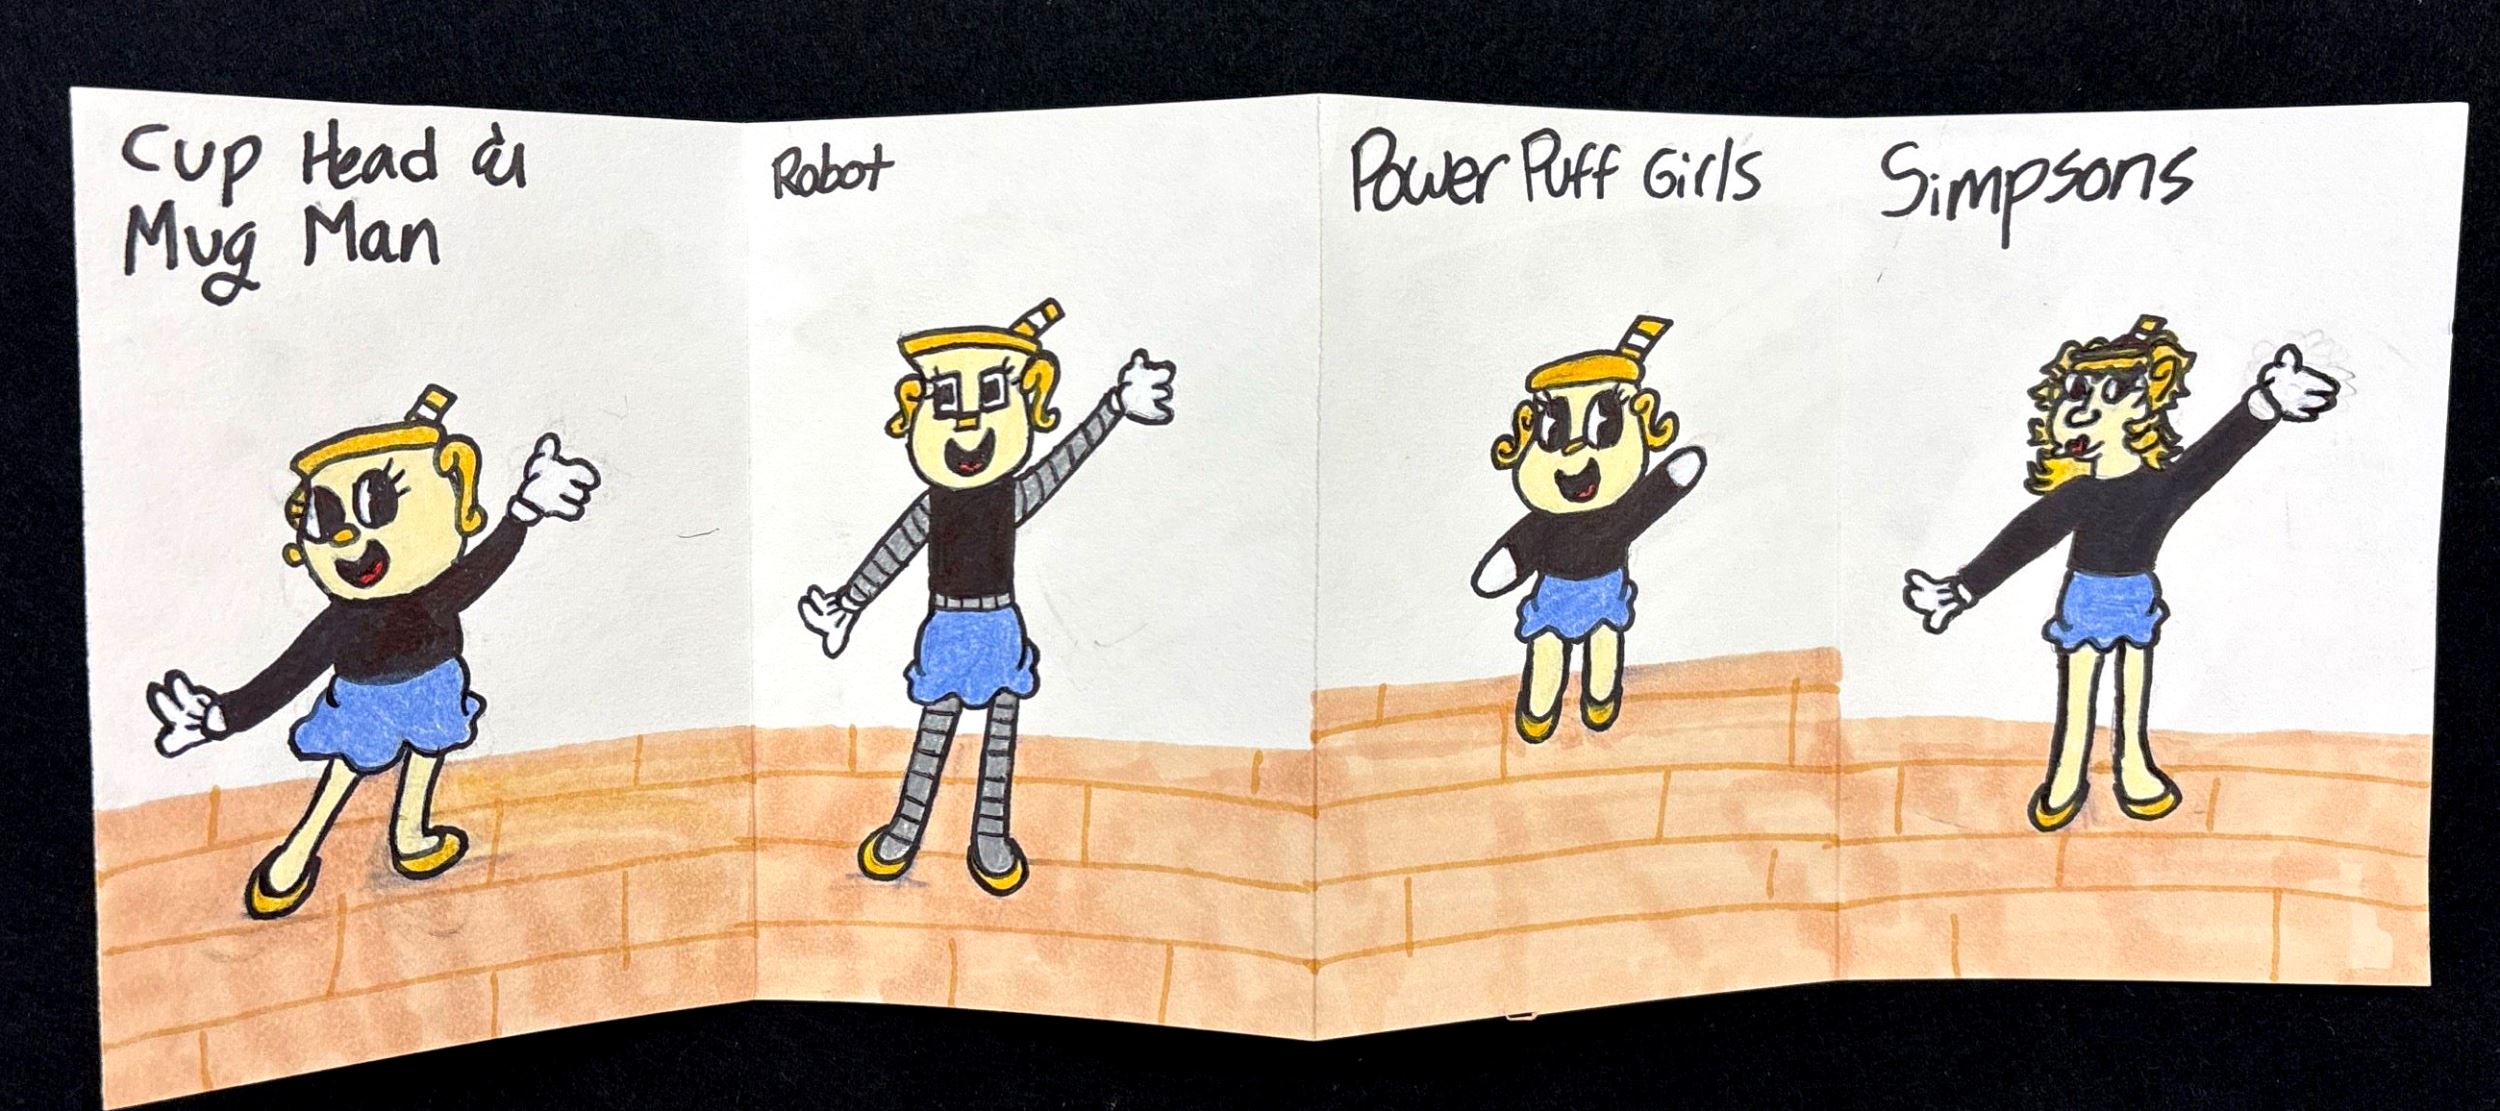 Cup Head &
Mug Man
Robot
Power Puff Girls
Simpsons